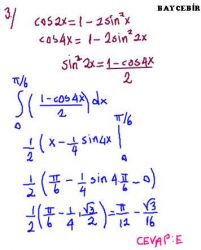 BAYCEBİR
3)
cos2x = 1 - 2sin²x
cos4x = 1 - 2sin²2x
sin²2x = (1 - cos4x)/2
∫₀^(π/6) ((1 - cos4x)/2) dx
1/2 (x - 1/4 sin4x |₀^(π/6)
1/2 (π/6 - 1/4 sin 4·π/6 - 0)
1/2 (π/6 - 1/4 · √3/2) = π/12 - √3/16
CEVAP: E